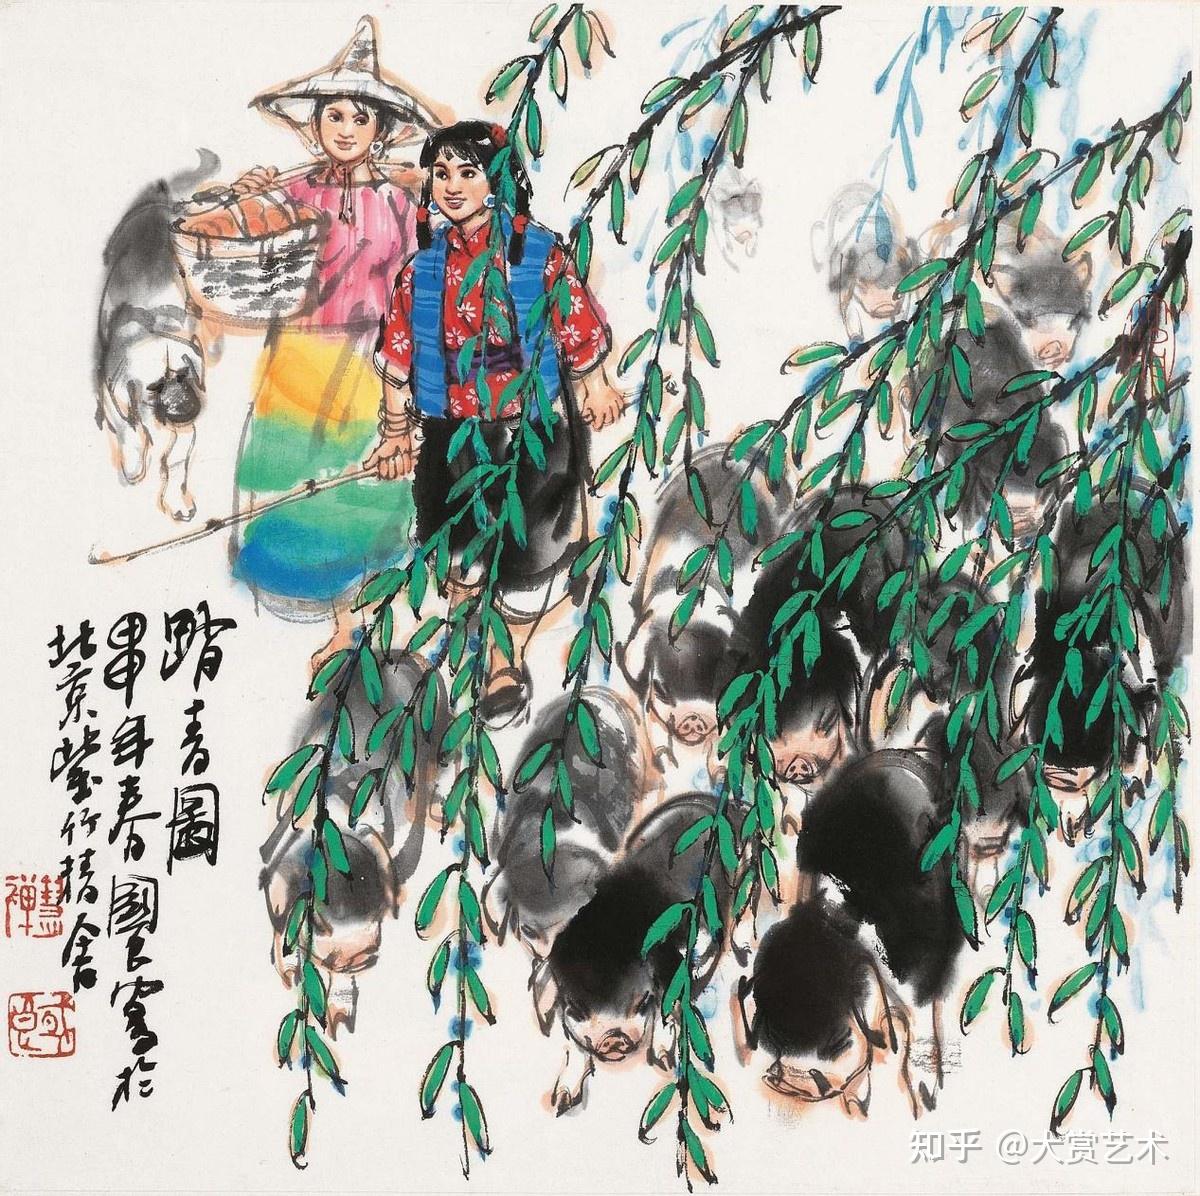 踏青圖
甲申年春國良寫於
北京紫竹精舍
慧禪
知乎 @大赏艺术